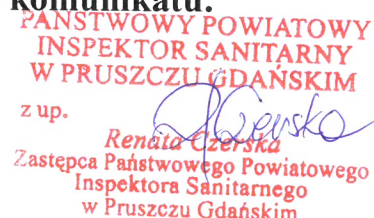 komunikatu.
PAŃSTWOWY POWIATOWY
INSPEKTOR SANITARNY
W PRUSZCZU GDAŃSKIM
z up.
Renata Czerska
Zastępca Państwowego Powiatowego
Inspektora Sanitarnego
w Pruszczu Gdańskim